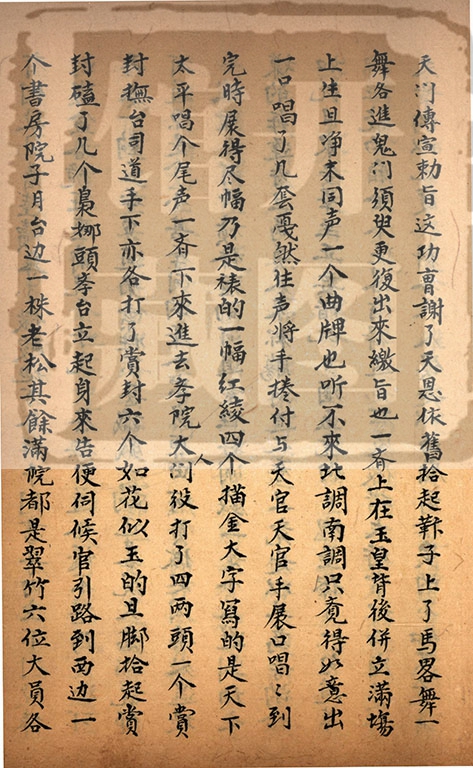 天门傳宣勅旨这功曹謝了天恩依舊拾起鞭子上了馬畧舞一
舞各進鬼门須臾更復出來繳旨也一齊上在玉皇背後併立滿塲
上生旦净末同声一个曲牌也听不來北調南調只竟得如意出
一口唱了几套戞然住声将手捲付与天官天官手展口唱〻到
完時展得尽幅乃是裱的一幅红綾四个描金大字寫的是天下
太平唱个尾声一齊下來進去孝院大人门役打了四两頭一个賞
封撫台司道手下亦各打了賞封六个如花似玉的旦脚拾起賞
封磕了几个裊娜頭孝台立起身來告便伺候官引路到西边一
个書房院子月台边一株老松其餘滿院都是翠竹六位大員各